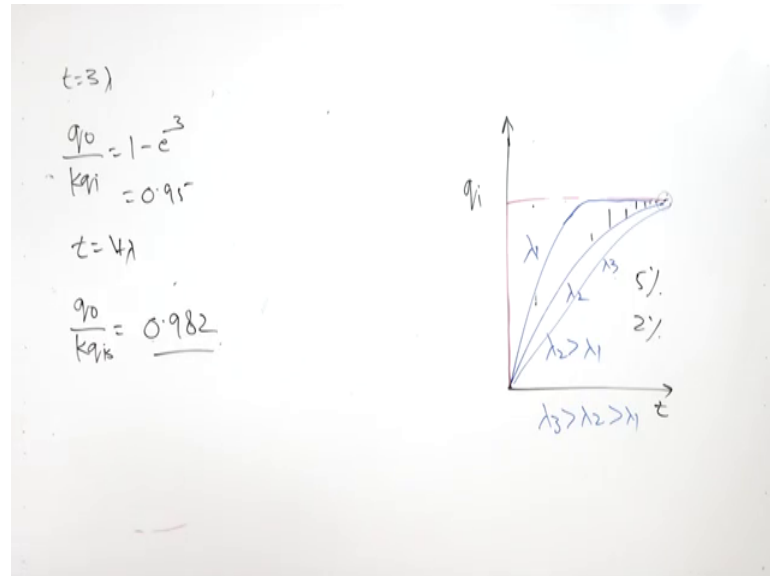 t=3λ
qo/kqi = 1-e^3
= 0.95
t=4λ
qo/kqis = 0.982
qi
λ1
λ2
λ3
5%
2%
λ2>λ1
t
λ3>λ2>λ1